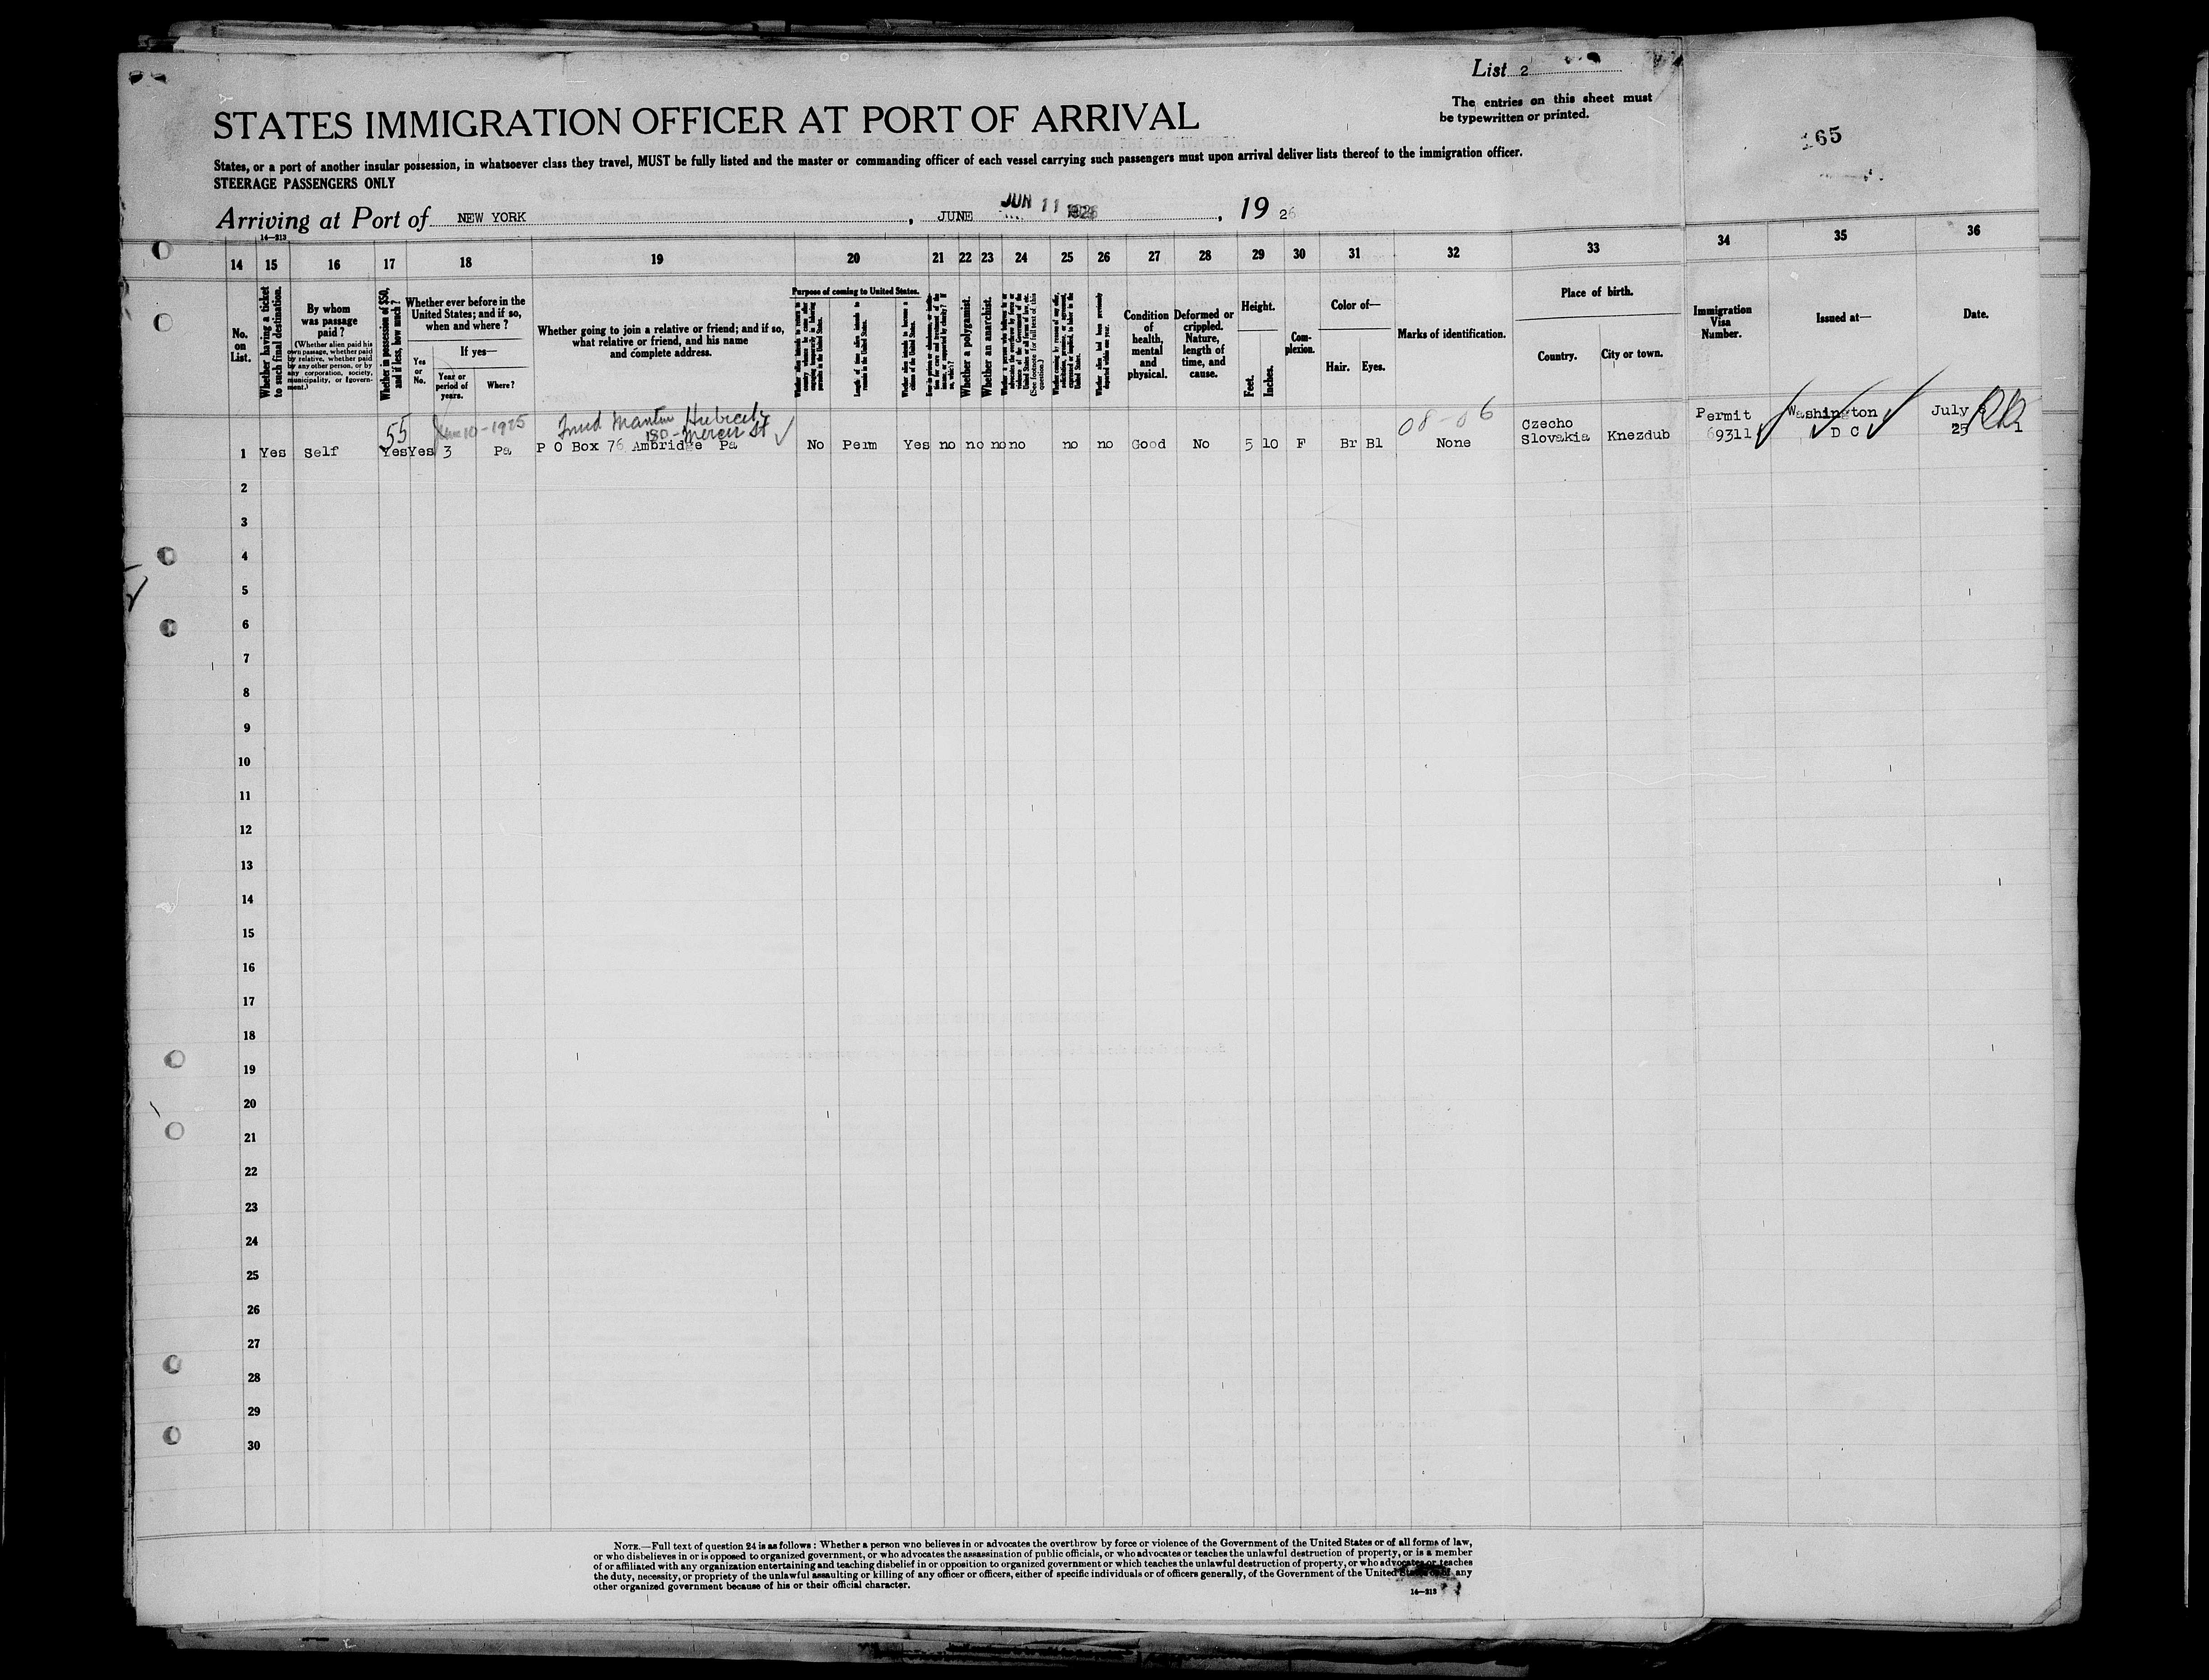 List 2
The entries on this sheet must
be typewritten or printed.
STATES IMMIGRATION OFFICER AT PORT OF ARRIVAL
65
States, or a port of another insular possession, in whatsoever class they travel, MUST be fully listed and the master or commanding officer of each vessel carrying such passengers must upon arrival deliver lists thereof to the immigration officer.
STEERAGE PASSENGERS ONLY
Arriving at Port of NEW YORK, JUNE JUN 11 1926, 19 26
14—213
14 15 16 17 18 19 20 21 22 23 24 25 26 27 28 29 30 31 32 33 34 35 36
No. on List.
Whether having a ticket to such final destination.
By whom was passage paid?
(Whether alien paid his own passage, whether paid by relative, whether paid by any other person, or by any corporation, society, municipality, or government.)
Whether in possession of $50, and if less, how much?
Whether ever before in the United States; and if so, when and where?
Yes or No.
If yes—
Year or period of years.
Where?
Whether going to join a relative or friend; and if so, what relative or friend, and his name and complete address.
Purpose of coming to United States.
Length of time alien intends to remain in the United States.
Whether alien intends to become a citizen of the United States.
Whether a polygamist.
Whether an anarchist.
(See footnote for full text of this question.)
Whether alien had been previously deported within one year.
Condition of health, mental and physical.
Deformed or crippled. Nature, length of time, and cause.
Height.
Feet.
Inches.
Complexion.
Color of—
Hair. Eyes.
Marks of identification.
Place of birth.
Country.
City or town.
Immigration Visa Number.
Issued at—
Date.
55 10-1925 Martin 08-06 Czecho Permit Washington July
180-Mercer St Slovakia 69311 D C 25
1 Yes Self Yes Yes 3 Pa P O Box 76 Ambridge Pa No Perm Yes no no no no no no Good No 5 10 F Br Bl None Knezdub
2
3
4
5
6
7
8
9
10
11
12
13
14
15
16
17
18
19
20
21
22
23
24
25
26
27
28
29
30
NOTE.—Full text of question 24 is as follows: Whether a person who believes in or advocates the overthrow by force or violence of the Government of the United States or of all forms of law,
or who disbelieves in or is opposed to organized government, or who advocates the assassination of public officials, or who advocates or teaches the unlawful destruction of property, or is a member
of or affiliated with any organization entertaining and teaching disbelief in or opposition to organized government or which teaches the unlawful destruction of property, or who advocates or teaches
the duty, necessity, or propriety of the unlawful assaulting or killing of any officer or officers, either of specific individuals or of officers generally, of the Government of the United States or of any
other organized government because of his or their official character.
14—213